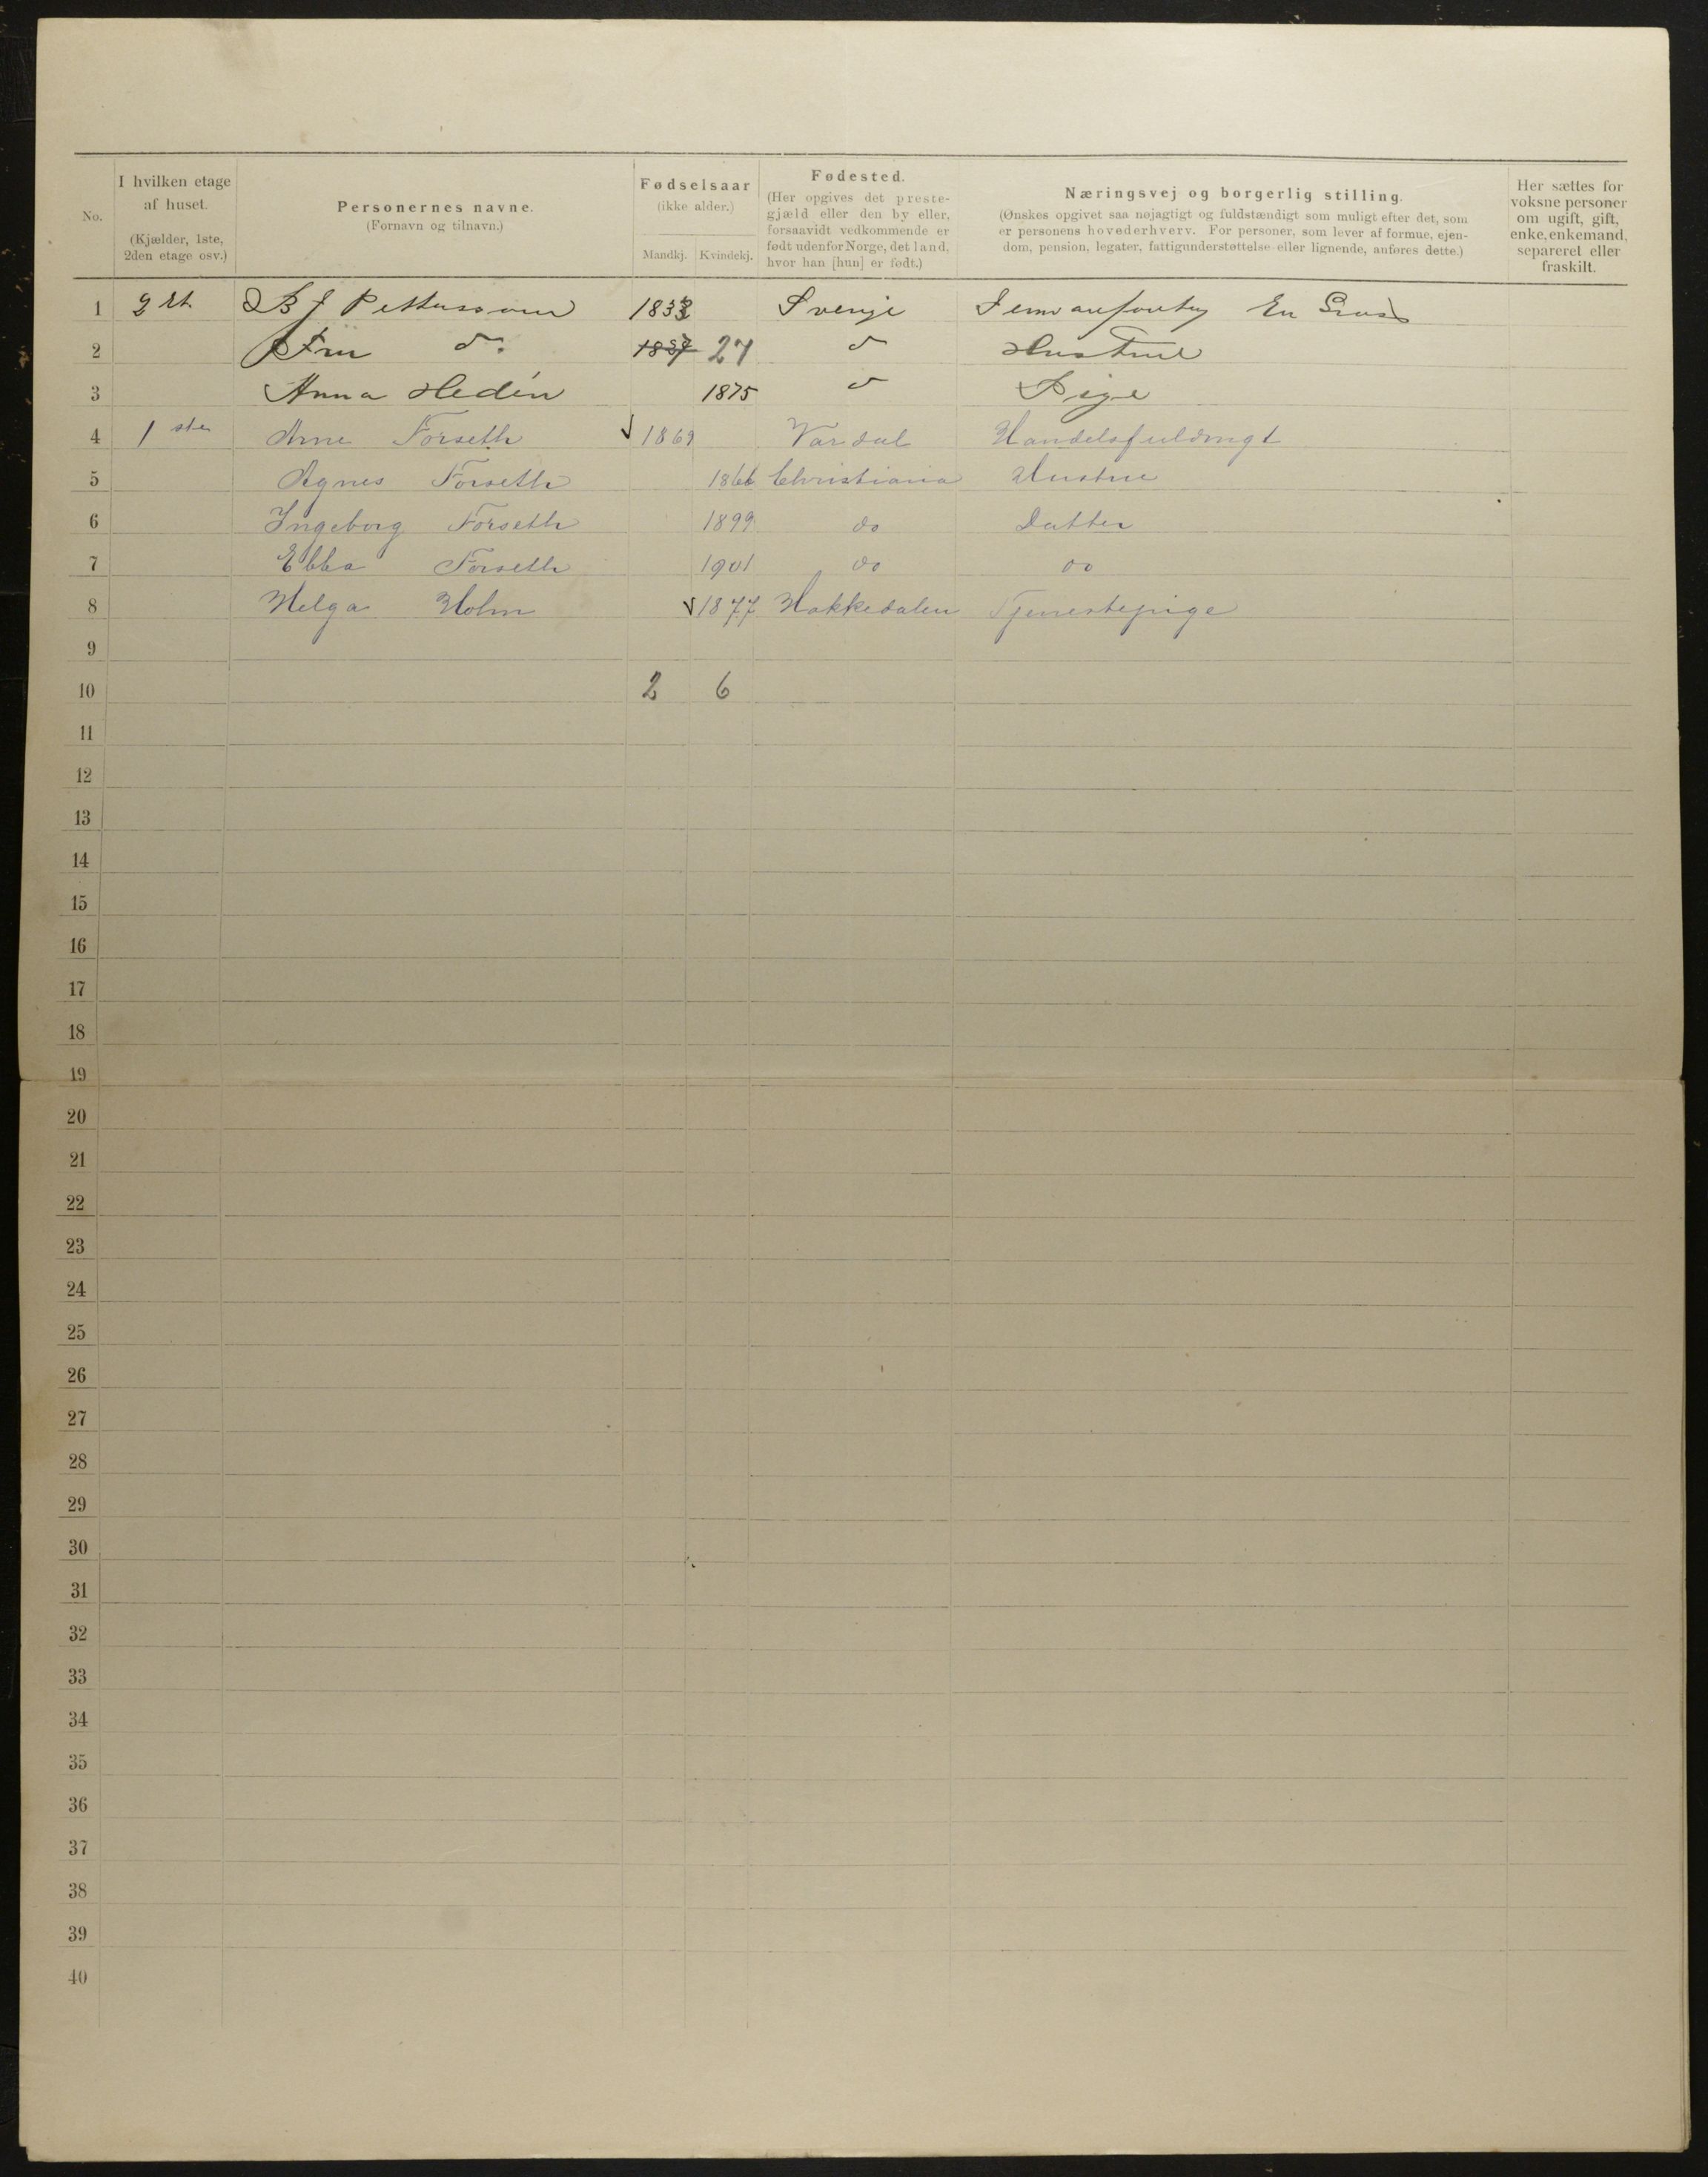 No.
I hvilken etage
af huset.
(Kjælder, 1ste,
2den etage osv.)
Personernes navne.
(Fornavn og tilnavn.)
Fødselsaar
(ikke alder.)
Mandkj. Kvindekj.
Fødested.
(Her opgives det preste-
gjæld eller den by eller,
forsaavidt vedkommende er
født udenfor Norge, det land,
hvor han [hun] er født.)
Næringsvej og borgerlig stilling.
(Ønskes opgivet saa nøjagtigt og fuldstændigt som muligt efter det, som
er personens hovederhverv. For personer, som lever af formue, ejen-
dom, pension, legater, fattigunderstøttelse eller lignende, anføres dette.)
Her sættes for
voksne personer
om ugift, gift,
enke, enkemand,
separeret eller
fraskilt.
1 B J Pettersson 1833 Sverige En Gros
2 Fru do 1837 27 do Hustrue
3 Anna Hedén 1875 do Pige
4 1ste Arne Forseth 1869 Vardal Handelsfuldmgt
5 Agnes Forseth 1866 Christiania Hustrue
6 Ingeborg Forseth 1899 do Datter
7 Ebba Forseth 1901 do do
8 Helga Holm 1877 Hakkedalen Tjenestepige
9
10 2 6
11
12
13
14
15
16
17
18
19
20
21
22
23
24
25
26
27
28
29
30
31
32
33
34
35
36
37
38
39
40